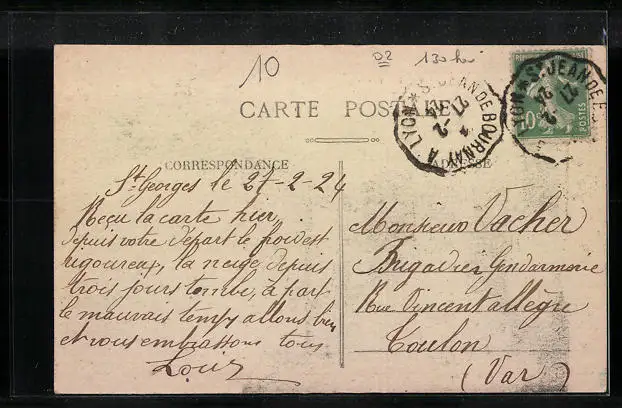 10
02
130
CARTE POSTALE
ST JEAN DE BOURNAY A LYON
27
2
24
ST JEAN DE B
LYON
27
2
10c
POSTES
CORRESPONDANCE
ADRESSE
St Georges le 27-2-24
Reçu la carte hier,
depuis votre départ le froid est
rigoureux, la neige depuis
trois jours tombe, a part
le mauvais temps allons bien
et vous embrassons tous
Louis
Monsieur Vacher
Brigadier Gendarmerie
Rue Vincent allègre
Toulon
(Var)